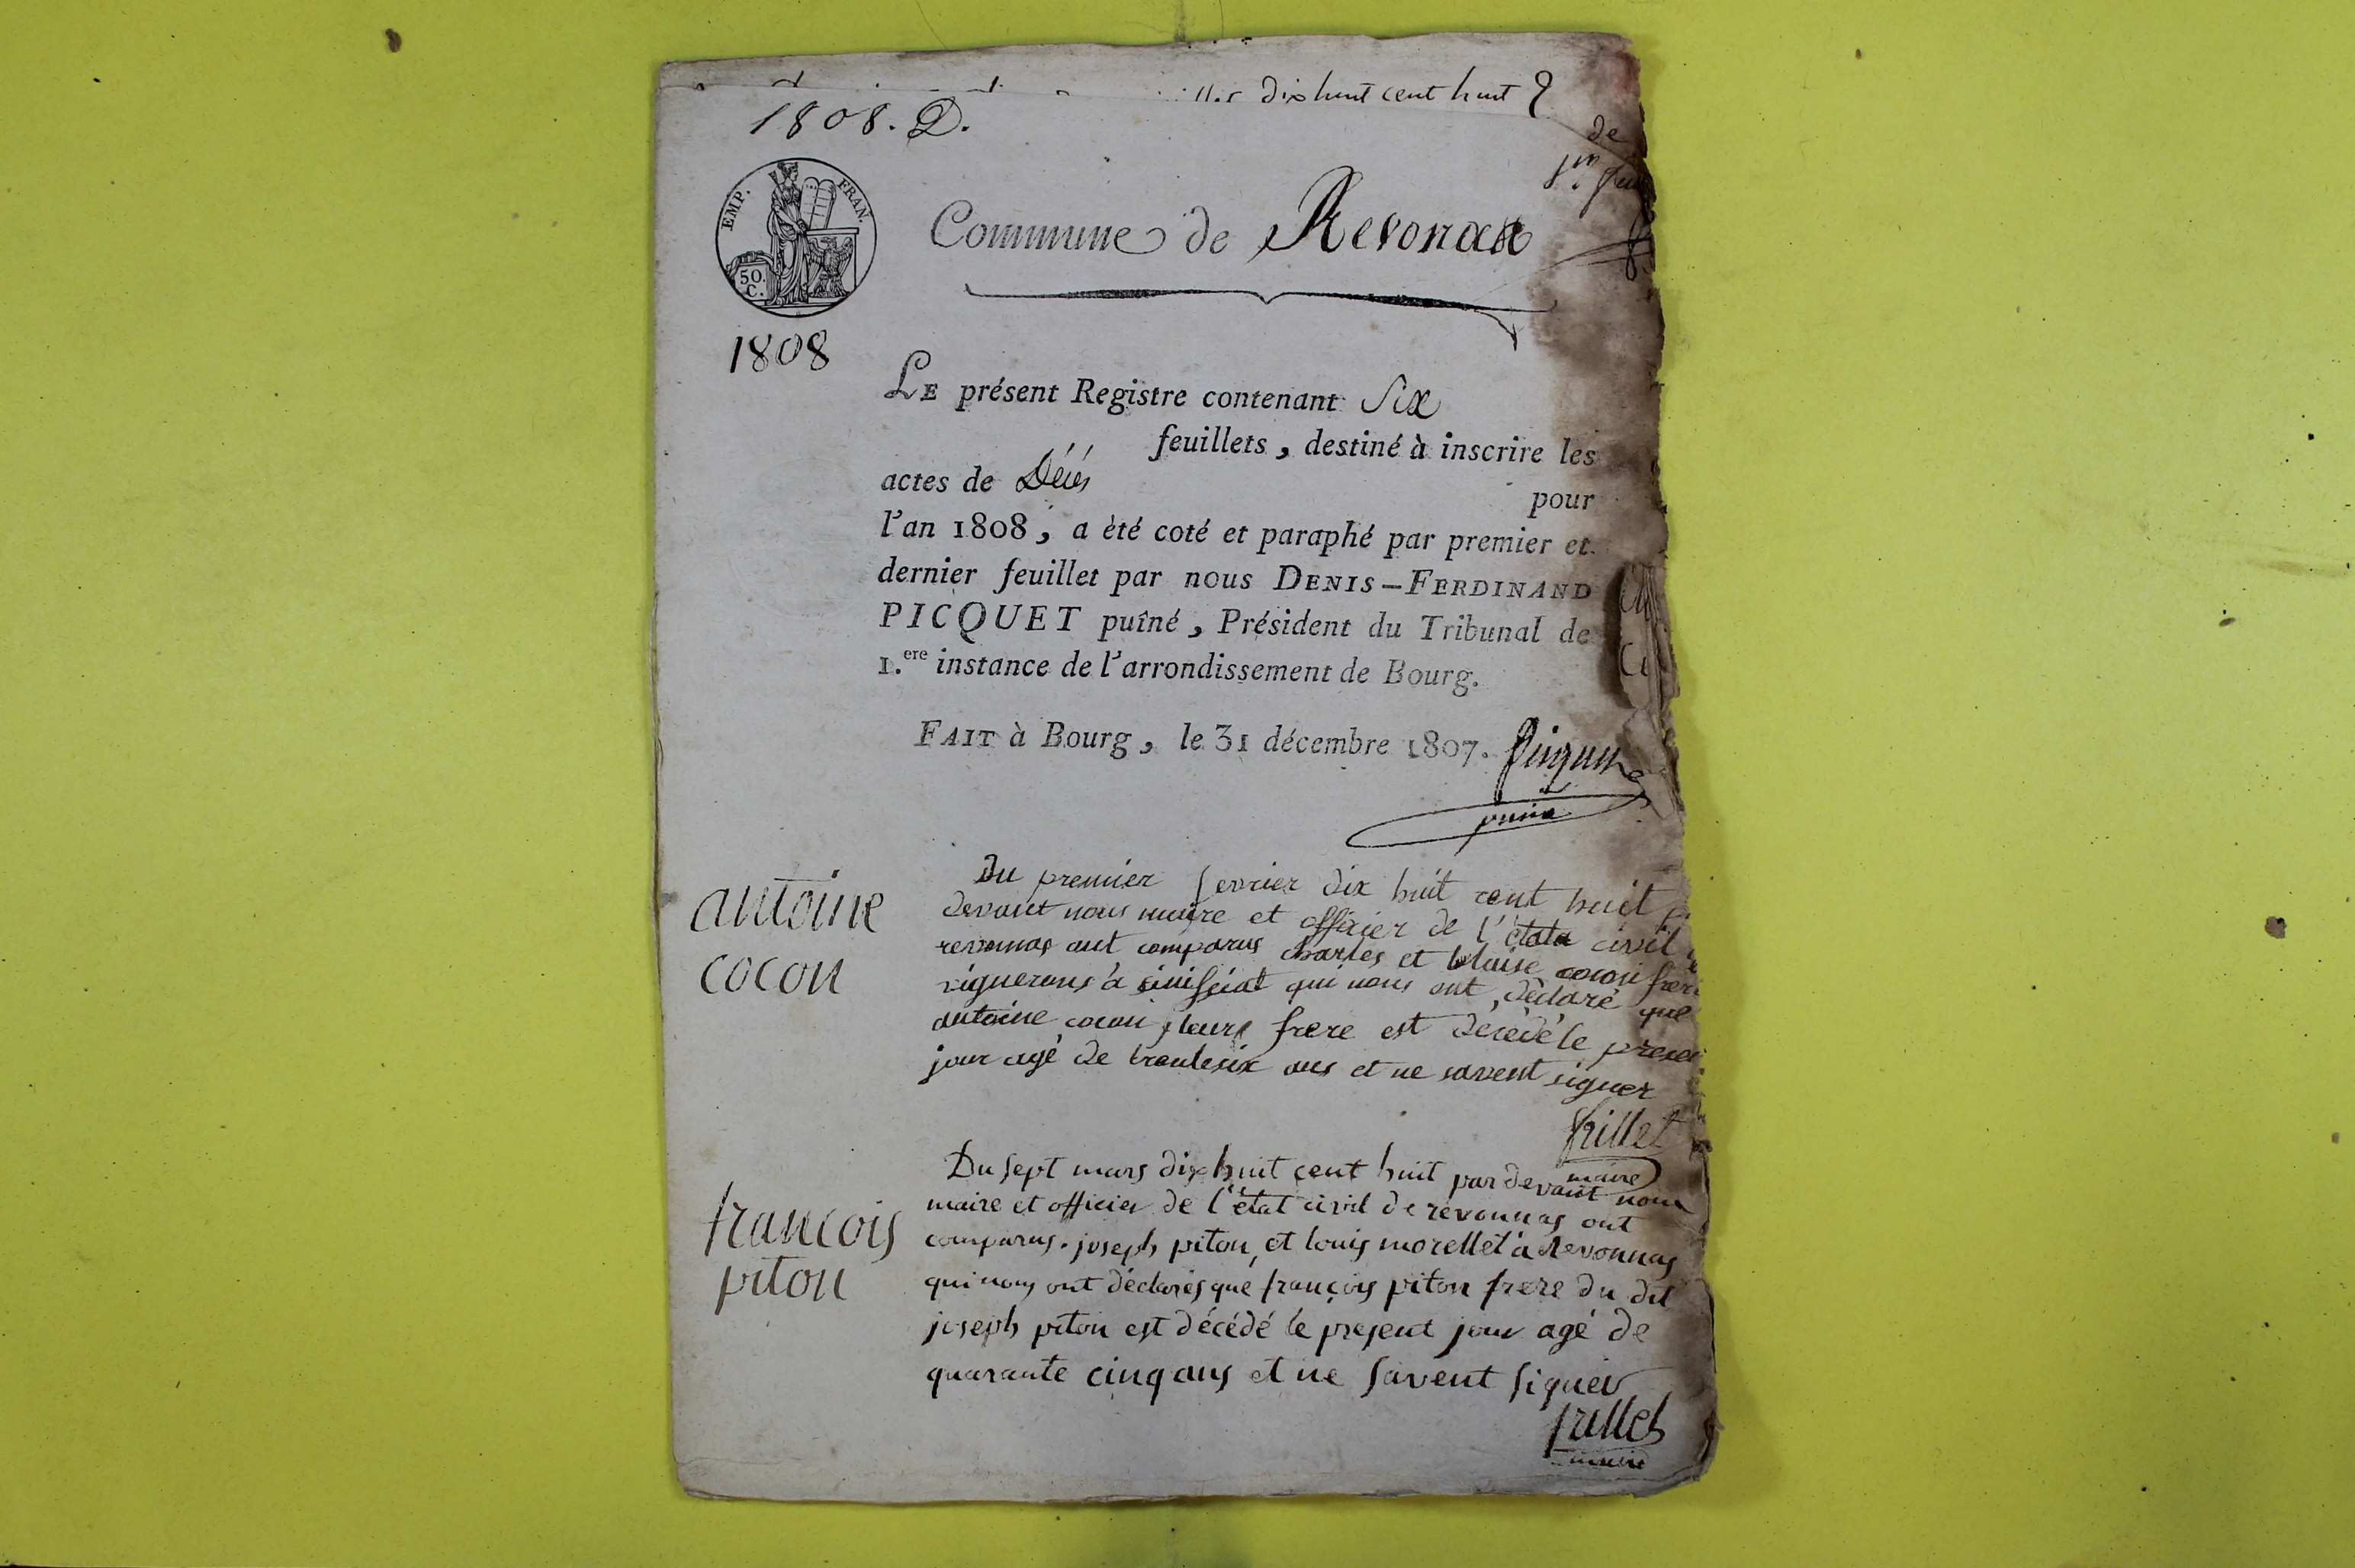 dix huit cent huit
1808. D.
de
EMP. FRAN.
50
C.
Commune de Revonas
1808
LE présent Registre contenant Six
feuillets, destiné à inscrire les
actes de Décés pour
l'an 1808, a èté coté et paraphé par premier et
dernier feuillet par nous DENIS-FERDINAND
PICQUET puîné, Président du Tribunal de
1.ere instance de l'arrondissement de Bourg.
FAIT à Bourg, le 31 décembre 1807. Picquet
puiné
antoine
cocon
Du premier fevrier dix huit cent huit
devant nous maire et officier de l'état civil
revonnas ont comparus charles et blaise cocon frere
vignerons à qui nous ont déclaré que
antoine cocon leurs frere est décédé le present
jour agé de trentesix ans et ne savent signer
frillet
maire
francois
piton
Du sept mars dix huit cent huit par devant nous
maire et officier de l'état civil de revonnas ont
comparus. joseph piton et louis morellet à Revonnas
qui nous ont déclarés que françois piton frere du dit
joseph piton est décédé le present jour agé de
quarante cinq ans et ne savent signer
frillet
maire